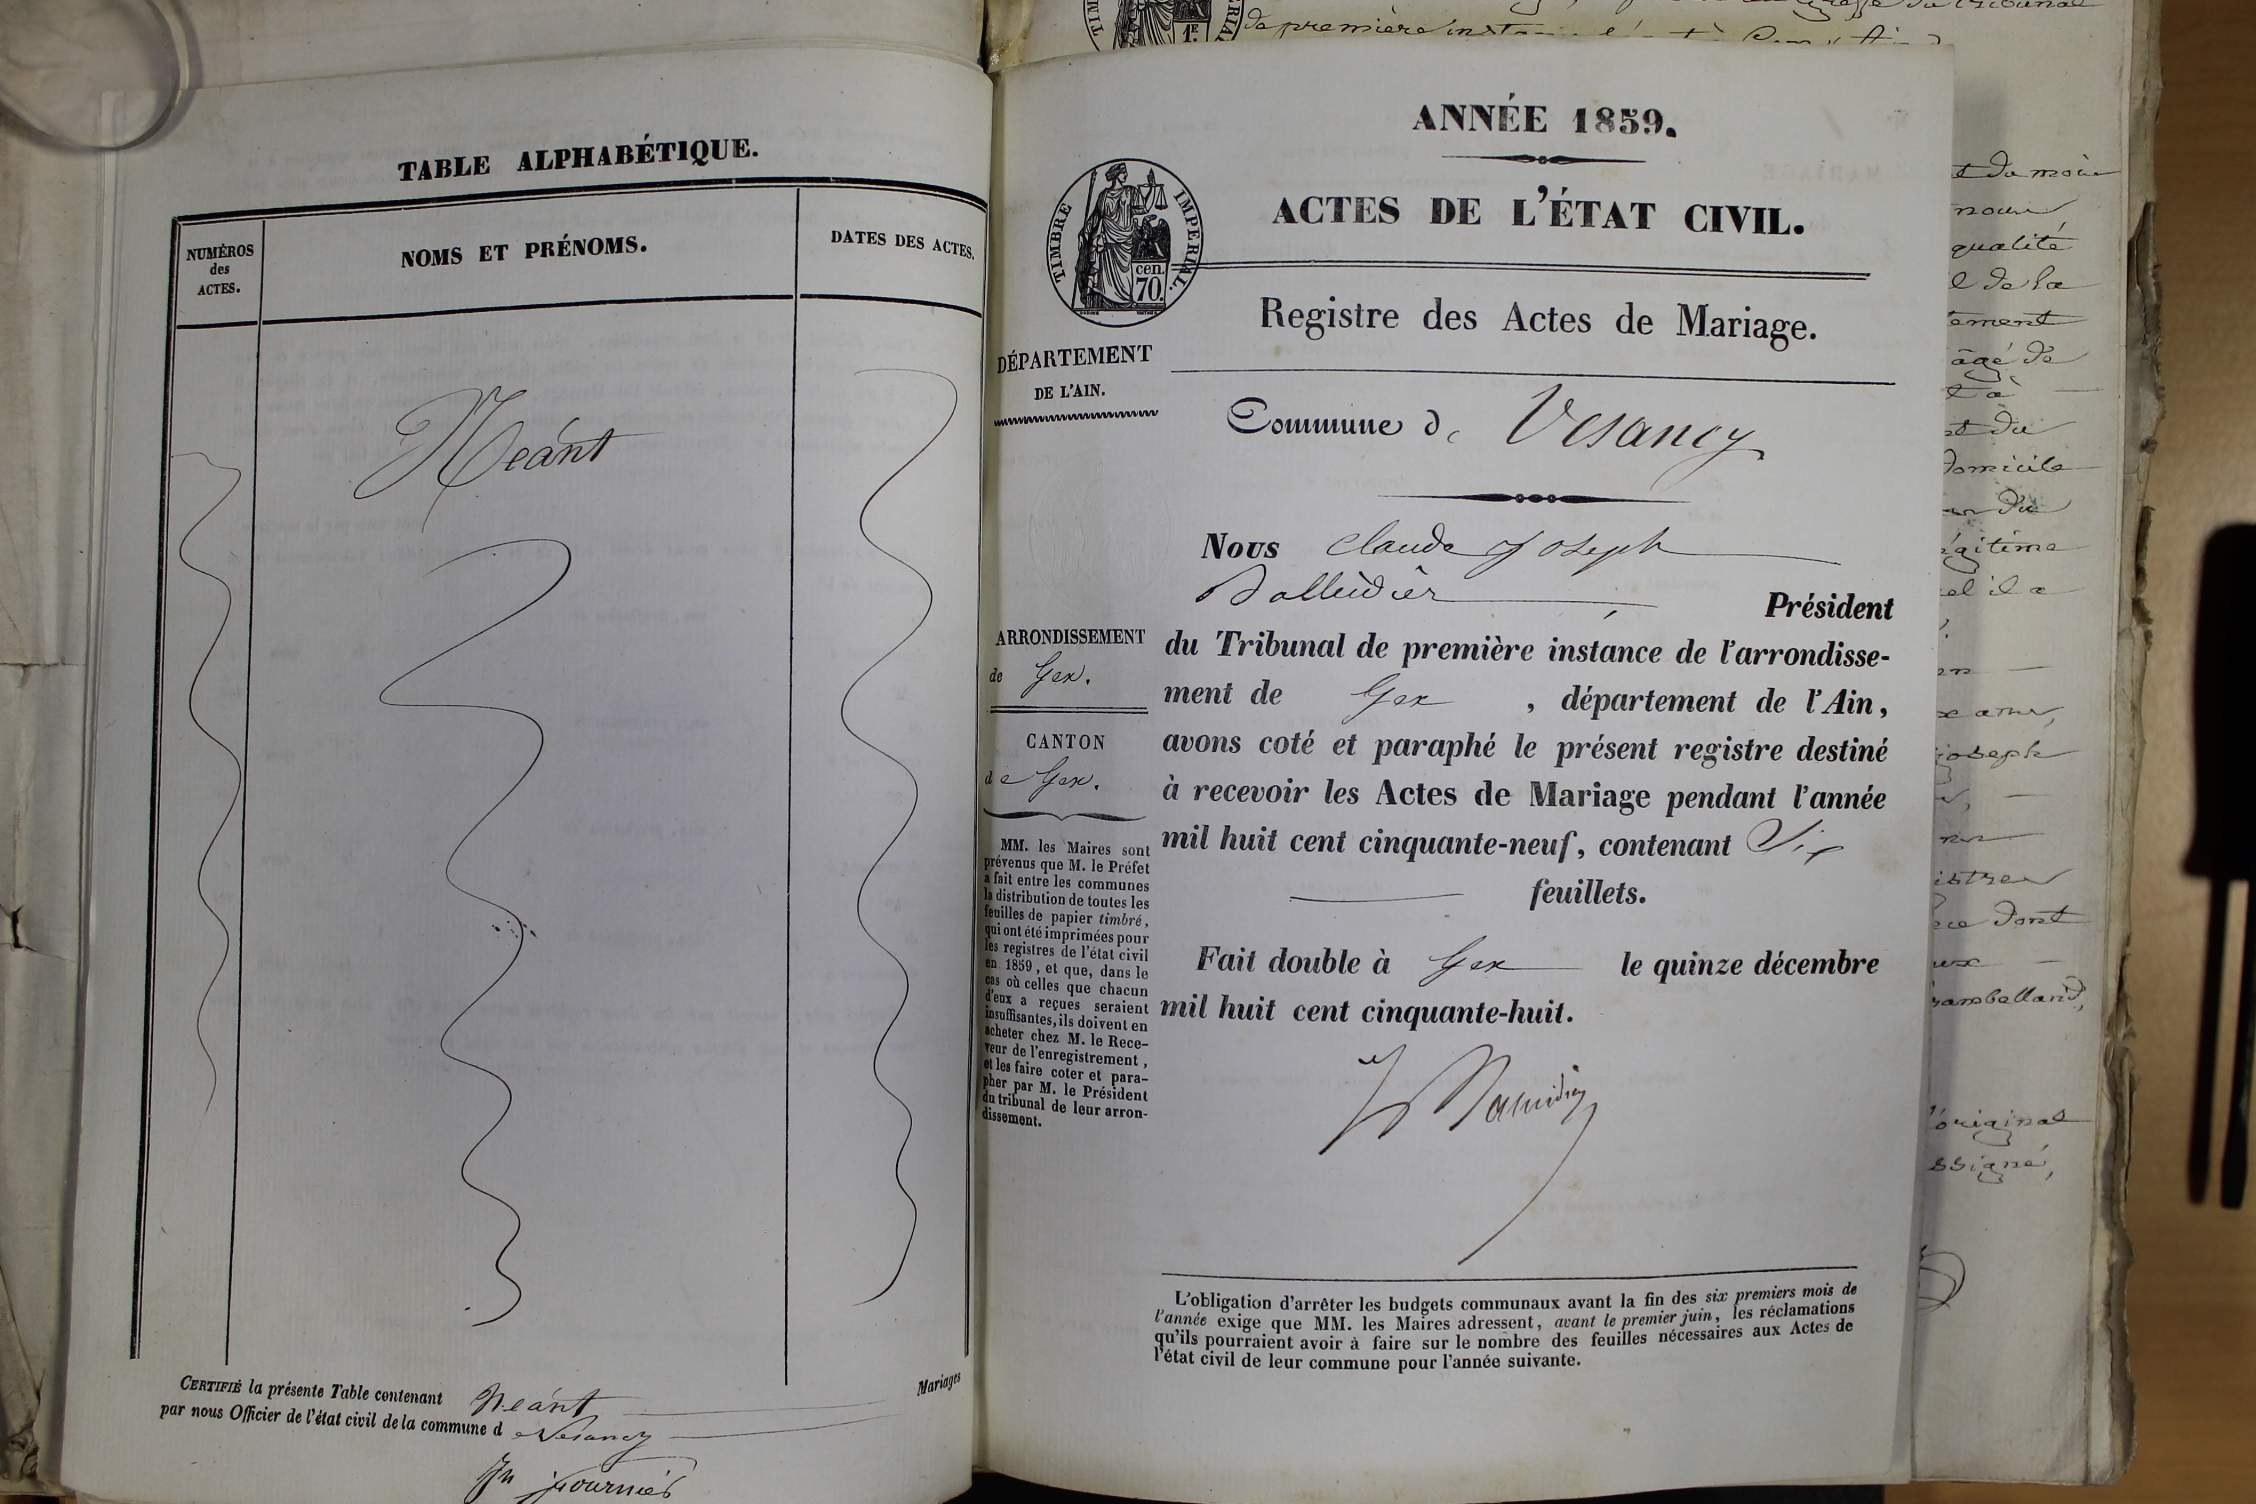 TABLE ALPHABÉTIQUE.
NUMÉROS
des
ACTES.
NOMS ET PRÉNOMS.
DATES DES ACTES.
Néant
CERTIFIÉ la présente Table contenant Néant Mariages
par nous Officier de l'état civil de la commune de Vesancy
Jn fournier
1E.
de première
ANNÉE 1859.
TIMBRE IMPERIAL.
cen.
70.
ACTES DE L'ÉTAT CIVIL.
Registre des Actes de Mariage.
DÉPARTEMENT
DE L'AIN.
Commune de Vesancy
Nous Claude Joseph
Balleidier Président
du Tribunal de première instance de l'arrondisse-
ment de Gex, département de l'Ain,
avons coté et paraphé le présent registre destiné
à recevoir les Actes de Mariage pendant l'année
mil huit cent cinquante-neuf, contenant Six
feuillets.
Fait double à Gex le quinze décembre
mil huit cent cinquante-huit.
ARRONDISSEMENT
de Gex.
CANTON
de Gex.
MM. les Maires sont
prévenus que M. le Préfet
a fait entre les communes
la distribution de toutes les
feuilles de papier timbré,
qui ont été imprimées pour
les registres de l'état civil
en 1859, et que, dans le
cas où celles que chacun
d'eux a reçues seraient
insuffisantes, ils doivent en
acheter chez M. le Rece-
veur de l'enregistrement,
et les faire coter et para-
pher par M. le Président
du tribunal de leur arron-
dissement.
L'obligation d'arrêter les budgets communaux avant la fin des six premiers mois de
l'année exige que MM. les Maires adressent, avant le premier juin, les réclamations
qu'ils pourraient avoir à faire sur le nombre des feuilles nécessaires aux Actes de
l'état civil de leur commune pour l'année suivante.
du mois
qualité
de la
âgé de
du
domicile
du
il a
joseph
dont
original